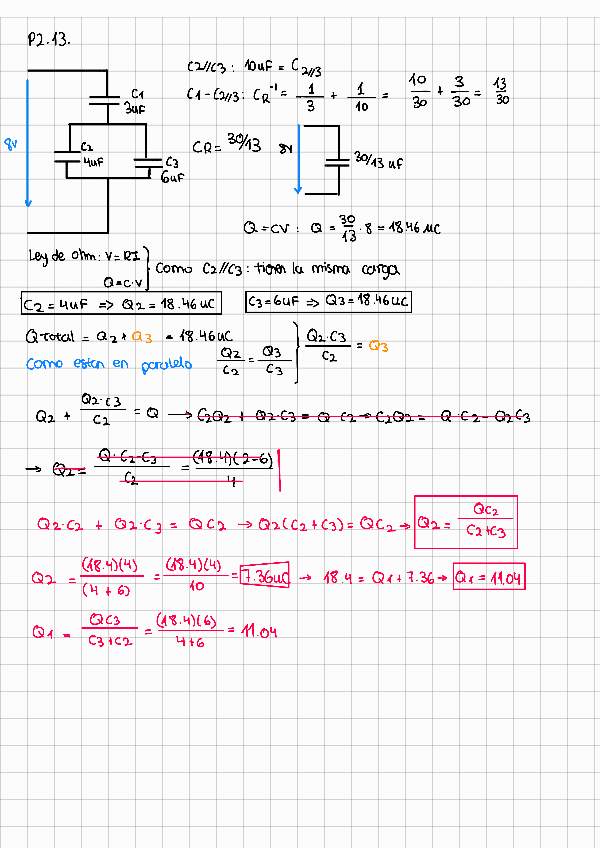 P2.13.
C2//C3: 10uF = C2//3
C1-C2//3: CR⁻¹ = 1/3 + 1/10 = 10/30 + 3/30 = 13/30
C1
3uF
8V
C2
4uF
C3
6uF
CR = 30/13
8V
30/13 uF
Q=CV: Q = 30/13 · 8 = 18.46 uC
Ley de ohm: V=RI
Q=C·V
Como C2//C3: tienen la misma carga
C2 = 4uF => Q2 = 18.46uC
C3=6uF => Q3=18.46uC
Qtotal = Q2 + Q3 = 18.46uC
Como estan en paralelo
Q2/C2 = Q3/C3
Q2·C3/C2 = Q3
Q2 + Q2·C3/C2 = Q → C2Q2 + Q2·C3 = Q·C2 → C2Q2 = Q·C2 - Q2C3
→ Q2 = Q·C2-C3/C2 = (18.4)(2-6)/4
Q2·C2 + Q2·C3 = QC2 → Q2(C2+C3)=QC2 → Q2 = QC2/C2+C3
Q2 = (18.4)(4)/(4+6) = (18.4)(4)/10 = 7.36uC → 18.4 = Q1+7.36 → Q1=11.04
Q1 = QC3/C3+C2 = (18.4)(6)/4+6 = 11.04